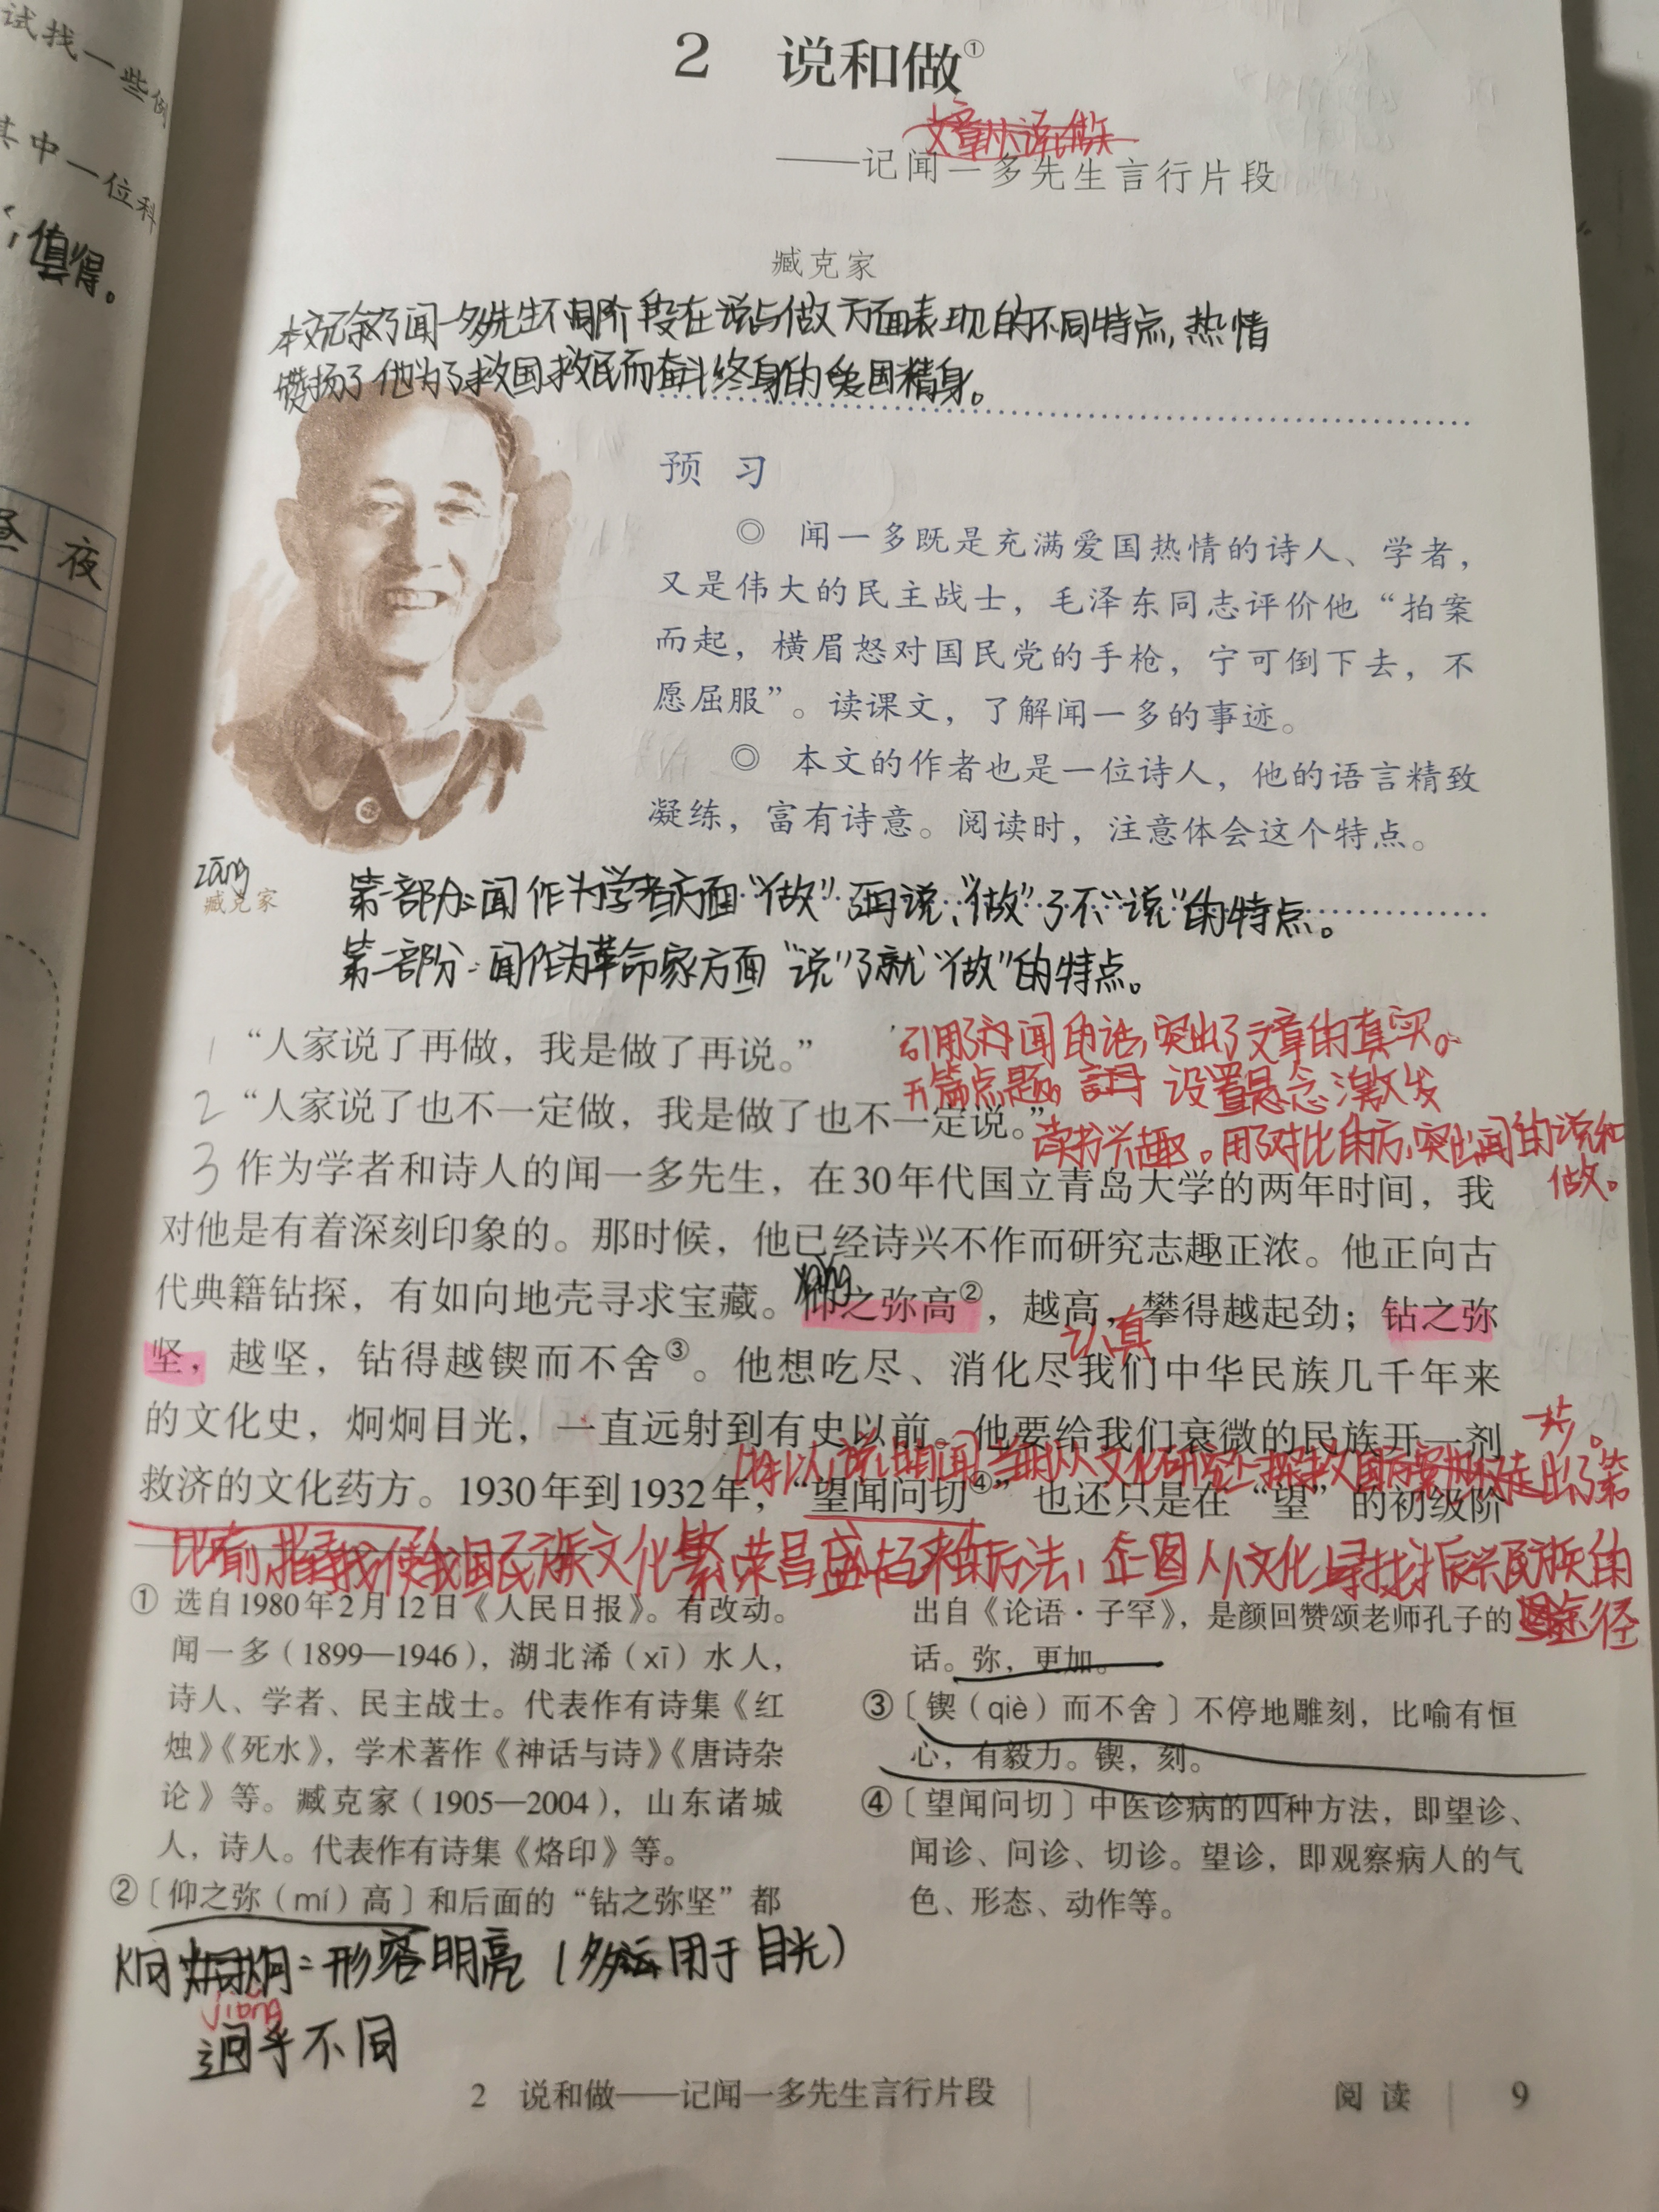 试找一些例
其中一位科
值得。
昼 夜
2 说和做①
——记闻一多先生言行片段
臧克家
本文记叙了闻一多先生不同阶段在说与做方面表现的不同特点,热情
赞扬了他为了救国救民而奋斗终身的爱国精身。
预 习
◎ 闻一多既是充满爱国热情的诗人、学者，
又是伟大的民主战士，毛泽东同志评价他“拍案
而起，横眉怒对国民党的手枪，宁可倒下去，不
愿屈服”。读课文，了解闻一多的事迹。
◎ 本文的作者也是一位诗人，他的语言精致
凝练，富有诗意。阅读时，注意体会这个特点。
zāng
臧克家
第一部分:闻作为学者方面“做”了再说、“做”了不“说”的特点。
第二部分:闻作为革命家方面“说”了就“做”的特点。
1 “人家说了再做，我是做了再说。”
引用了对闻的话,突出了文章的真实。
开篇点题。 设置悬念激发
2 “人家说了也不一定做，我是做了也不一定说。”
读书兴趣。用了对比的方,突出闻的说和
做。
3 作为学者和诗人的闻一多先生，在30年代国立青岛大学的两年时间，我
对他是有着深刻印象的。那时候，他已经诗兴不作而研究志趣正浓。他正向古
代典籍钻探，有如向地壳寻求宝藏。仰之弥高②，越高，攀得越起劲；钻之弥
认真
坚，越坚，钻得越锲而不舍③。他想吃尽、消化尽我们中华民族几千年来
的文化史，炯炯目光，一直远射到有史以前。他要给我们衰微的民族开一剂
步。
救济的文化药方。1930年到1932年，“望闻问切④”也还只是在“望”的初级阶
① 选自1980年2月12日《人民日报》。有改动。
闻一多（1899—1946），湖北浠（xī）水人，
诗人、学者、民主战士。代表作有诗集《红
烛》《死水》，学术著作《神话与诗》《唐诗杂
论》等。臧克家（1905—2004），山东诸城
人，诗人。代表作有诗集《烙印》等。
②〔仰之弥（mí）高〕和后面的“钻之弥坚”都
出自《论语·子罕》，是颜回赞颂老师孔子的
话。弥，更加。
③〔锲（qiè）而不舍〕不停地雕刻，比喻有恒
心，有毅力。锲，刻。
④〔望闻问切〕中医诊病的四种方法，即望诊、
闻诊、问诊、切诊。望诊，即观察病人的气
色、形态、动作等。
炯炯:形容明亮(多运用于目光)
jiǒng
迥乎不同
2 说和做——记闻一多先生言行片段
阅读 9